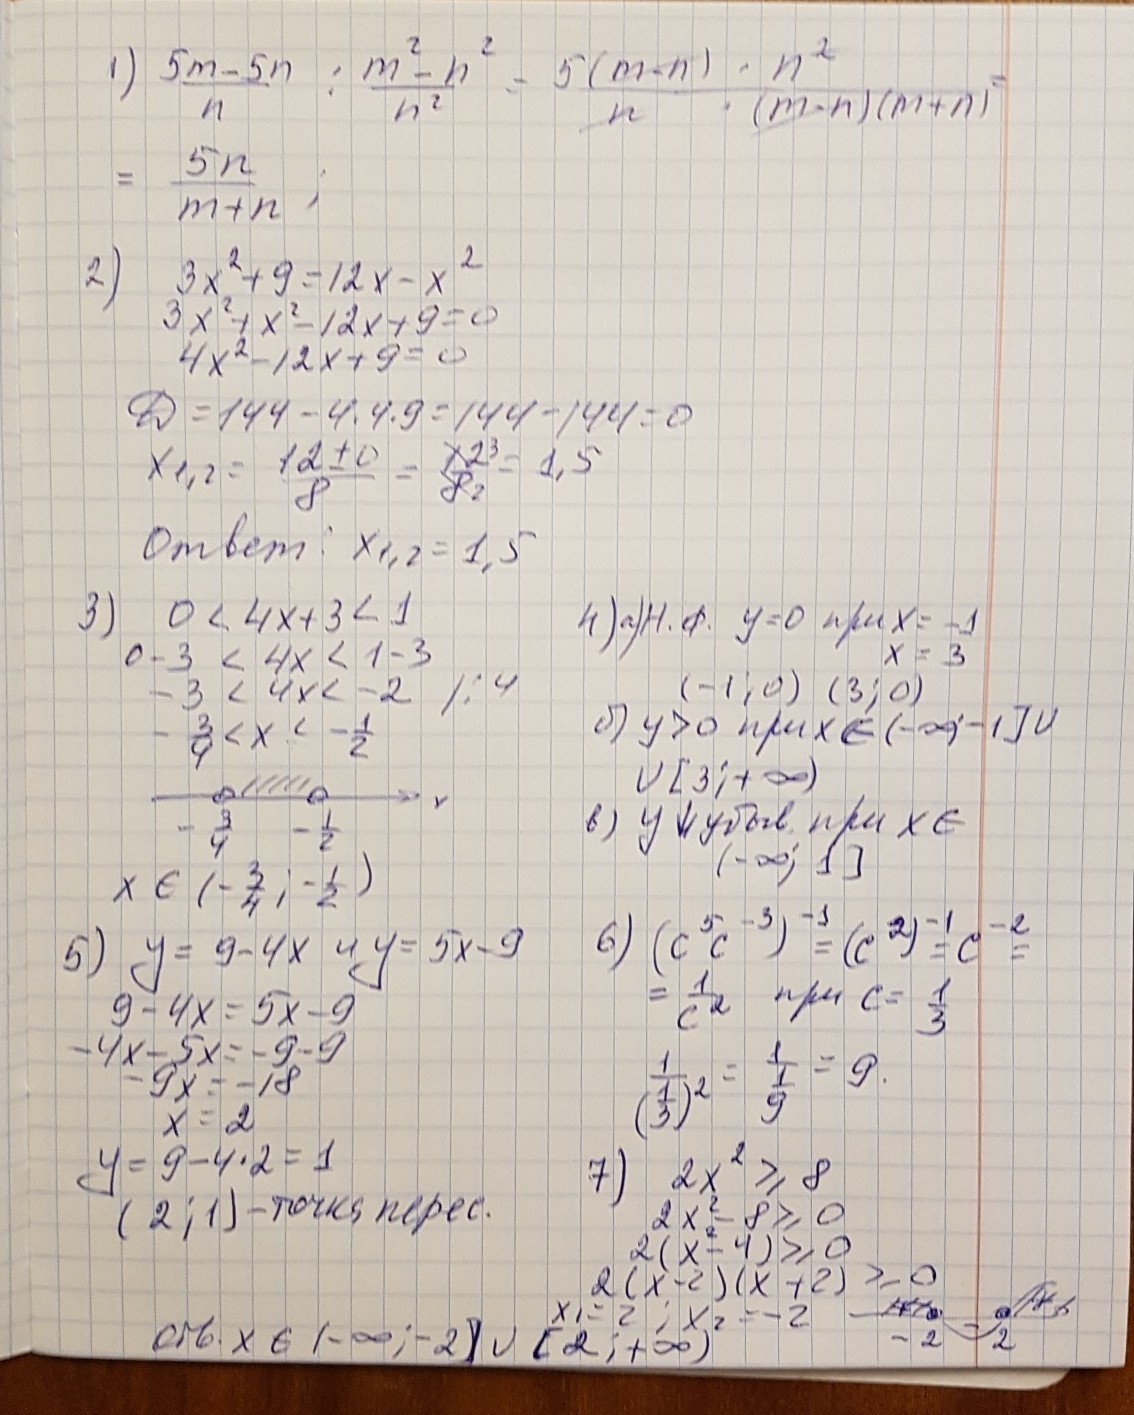 1) (5m-5n)/n : (m²-n²)/n² = (5(m-n) · n²)/(n · (m-n)(m+n)) =
= 5n/(m+n) ;
2) 3x²+9=12x-x²
3x²+x²-12x+9=0
4x²-12x+9=0
D=144-4·4·9=144-144=0
x₁,₂= (12±0)/8 = 12³/8₂ = 1,5
Ответ: x₁,₂=1,5
3) 0<4x+3<1
0-3 < 4x < 1-3
-3 < 4x < -2 /:4
-3/4 < x < -1/2
x
-3/4 -1/2
x ∈ (-3/4 ; -1/2)
4) а) Н.ф. y=0 при x= -1
x = 3
(-1;0) (3;0)
б) y>0 при x∈(-∞;-1]∪
∪[3;+∞)
в) y ↓ убыв. при x∈
(-∞; 1]
5) y= 9-4x и y= 5x-9
9-4x=5x-9
-4x-5x=-9-9
-9x=-18
x=2
y=9-4·2=1
(2;1) - точка перес.
6) (c⁵c⁻³)⁻¹=(c²)⁻¹=c⁻²=
= 1/c² при c= 1/3
1/(1/3)² = 1/(1/9) = 9.
7) 2x² ⩾ 8
2x²-8⩾0
2(x²-4)⩾0
2(x-2)(x+2)⩾0
x₁=2 ; x₂=-2
+ - +
-2 2
Отв. x ∈ (-∞;-2]∪[2;+∞)